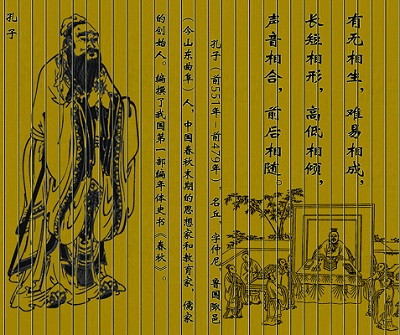 有无相生，难易相成，
长短相形，高低相倾，
声音相合，前后相随。
孔子（前551年－前479年），名丘，字仲尼，鲁国陬邑
（今山东曲阜）人，中国春秋末期的思想家和教育家，儒家
的创始人。编撰了我国第一部编年体史书《春秋》。
孔子